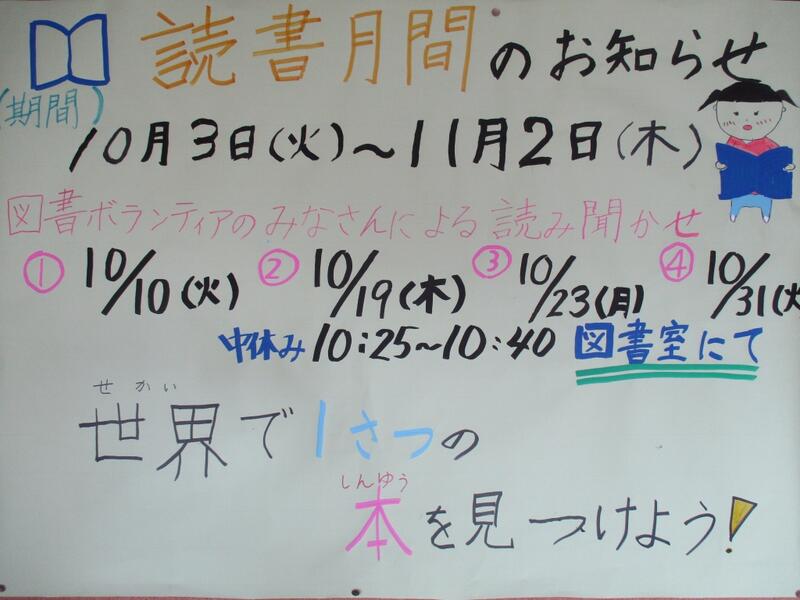 読書月間のお知らせ
(期間)
10月3日(火)～11月2日(木)
図書ボランティアのみなさんによる読み聞かせ
① 10/10(火) ② 10/19(木) ③ 10/23(月) ④ 10/31(火
中休み 10:25～10:40 図書室にて
せかい
世界で1さつの
しんゆう
本を見つけよう!